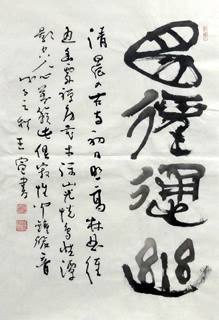 曲徑通幽
清晨入古寺初日照高林曲徑
通幽處禪房花木深山光悅鳥性潭
影空人心萬籟此俱寂惟聞鐘磬音
之秋王書